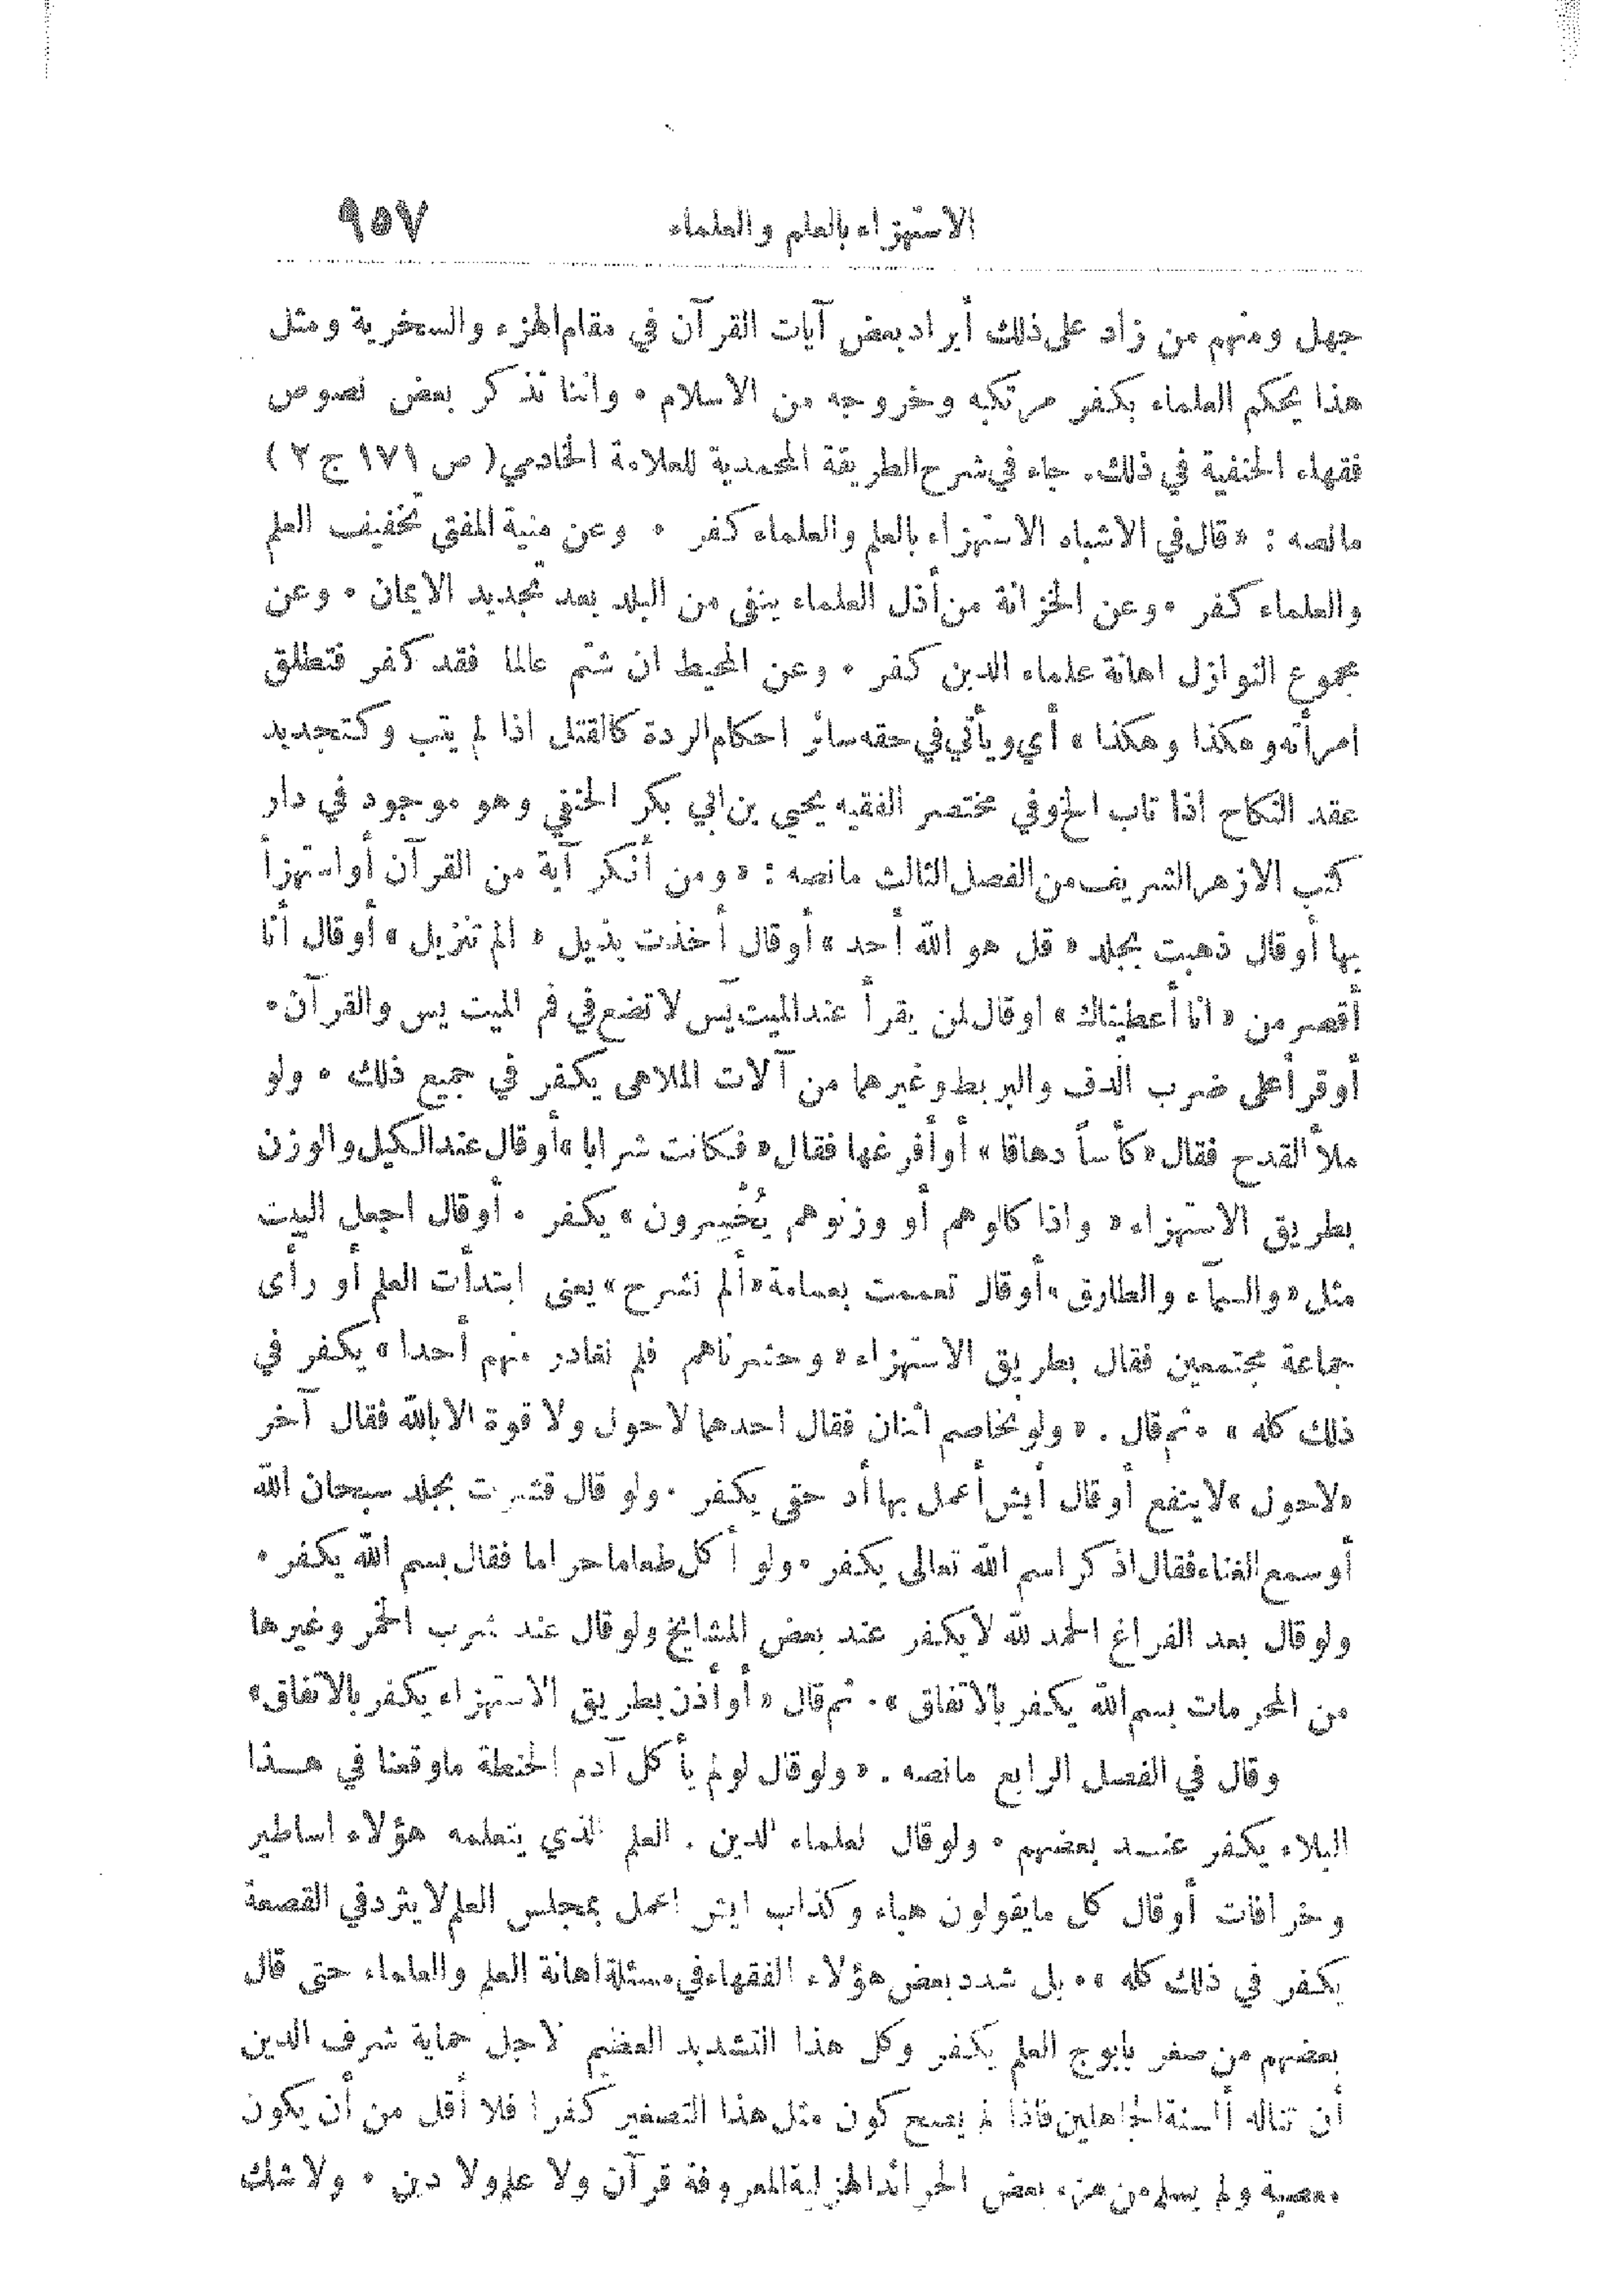 الاستهزاء بالعلم والعلماء ٩٥٧
جهل ومنهم من زاد على ذلك أيراد بعض آيات القرآن في مقام الهزء والسخرية ومثل
هذا يحكم العلماء بكفر مرتكبه وخروجه من الاسلام ٠ واننا نذكر بعض نصوص
فقهاء الحنفية في ذلك. جاء في شرح الطريقة المحمدية للعلامة الخادمي ( ص ١٧١ ج ٢ )
مانصه : « قال في الاشباه الاستهزاء بالعلم والعلماء كفر ٠ وعن منية المفتي تخفيف العلم
والعلماء كفر ٠ وعن الخزانة من أذل العلماء ينفى من البلد بعد تجديد الايمان ٠ وعن
مجموع النوازل اهانة علماء الدين كفر ٠ وعن المحيط ان شتم عالما فقد كفر فتطلق
امرأته وهكذا وهكذا » أي ويأتي في حقه سائر احكام الردة كالقتل اذا لم يتب وكتجديد
عقد النكاح اذا تاب الخ وفي مختصر الفقيه يحيى بن ابي بكر الحنفي وهو موجود في دار
كتب الازهر الشريف من الفصل الثالث مانصه : « ومن أنكر آية من القرآن أو استهزأ
بها أو قال ذهبت بجلد « قل هو الله أحد » أو قال أخذت بذيل « الم تنزيل » أو قال أنا
أقصر من « انا أعطيناك » او قال لمن يقرأ عند الميت يّس لا تضع في فم الميت يس والقرآن ٠
أو قرأ على ضرب الدف والبربط وغيرهما من آلات الملاهى يكفر في جميع ذلك ٠ ولو
ملأ القدح فقال « كأساً دهاقا » أو أفرغها فقال « فكانت شرابا » أو قال عند الكيل والوزن
بطريق الاستهزاء « واذا كالوهم أو وزنوهم يُخْسِرون » يكفر ٠ أو قال اجعل البيت
مثل « والسمآء والطارق » أو قال تعممت بعمامة « ألم نشرح » يعنى ابتدأت العلم أو رأى
جماعة مجتمعين فقال بطريق الاستهزاء « وحشرناهم فلم نغادر منهم أحدا » يكفر في
ذلك كله » ٠ ثم قال . « ولو تخاصم اثنان فقال احدهما لا حول ولا قوة الا بالله فقال آخر
« لا حول » لا ينفع أو قال أيش أعمل بها أد حتى يكفر ٠ ولو قال قشرت بجلد سبحان الله
أو سمع الغناء فقال اذكر اسم الله تعالى يكفر ٠ ولو أكل طعاما حراما فقال بسم الله يكفر ٠
ولو قال بعد الفراغ الحمد لله لا يكفر عند بعض المشايخ ولو قال عند شرب الخمر وغيرها
من المحرمات بسم الله يكفر بالاتفاق » ٠ ثم قال « أو أذن بطريق الاستهزاء يكفر بالاتفاق »
وقال في الفصل الرابع مانصه . « ولو قال لو لم يأكل آدم الحنطة ماوقعنا في هـذا
البلاء يكفر عنـد بعضهم ٠ ولو قال لعلماء الدين . العلم الذي يتعلمه هؤلاء اساطير
وخرافات أو قال كل ما يقولون هباء وكذاب ايش اعمل بمجلس العلم لا يثرد في القصعة
يكفر في ذلك كله » ٠ بل شدد بعض هؤلاء الفقهاء في مسئلة اهانة العلم والعلماء حتى قال
بعضهم من صغر بابوج العلم يكفر وكل هذا التشديد العظيم لاجل حماية شرف الدين
أن تناله ألسنة الجاهلين فاذا لم يصح كون مثل هذا التصغير كفرا فلا أقل من أن يكون
معصية ولم يسلم من هزء بعض الجرائد الهزلية المعروفة قرآن ولا علم ولا دين ٠ ولا شك